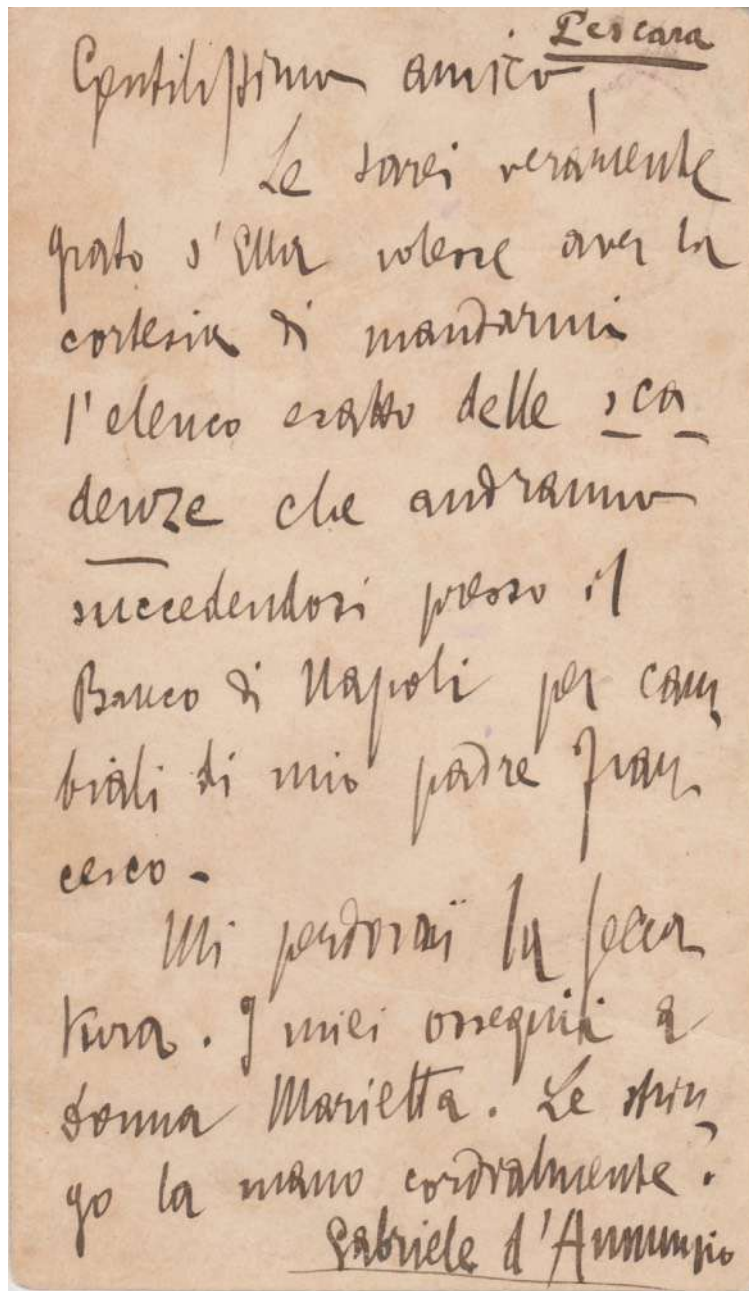 Pescara
Gentilissimo amico,
Le sarei veramente
grato s'Ella volesse aver la
cortesia di mandarmi
l'elenco esatto delle sca
denze che andranno
succedendosi presso il
Banco di Napoli per cam
biali di mio padre Fran
cesco -
Mi perdoni la secca
tura. I miei ossequii a
donna Marietta. Le strin
go la mano cordialmente.
Gabriele d'Annunzio